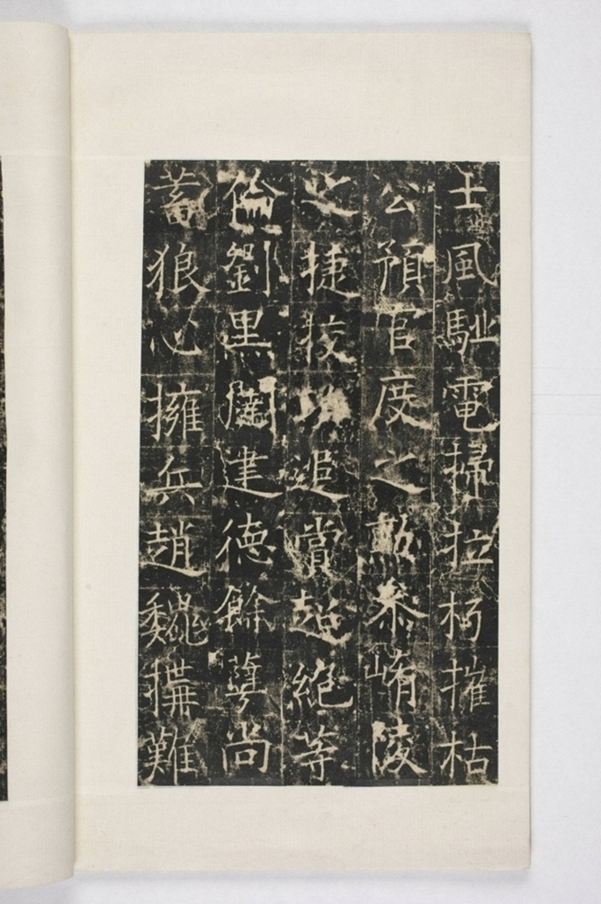 士風馳電掃拉朽摧枯
公預官度之勳參崤陵
之捷校功追賞超絕等
倫劉黑闥建德餘孽尚
蓄狼心擁兵趙魏搆難